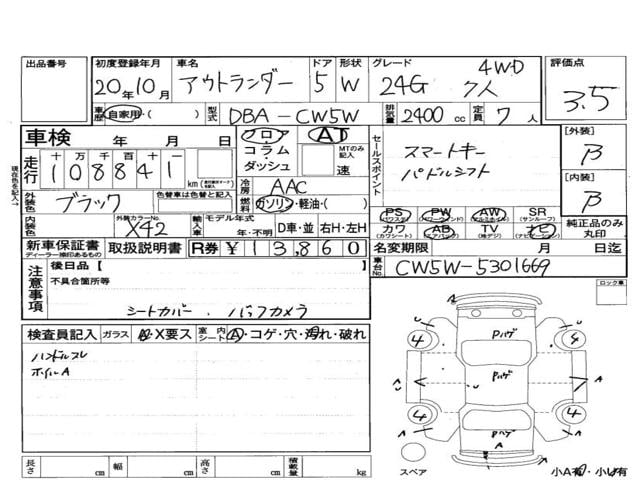 出品番号
初度登録年月
20年10月
車名
アウトランダー
ドア
5
形状
W
グレード
24G 7人 4WD
評価点
3.5
車歴
自家用・( )
型式
DBA-CW5W
排気量
2400 cc
定員
7人
車検 年 月 日
フロア・コラム・ダッシュ
AT
MTのみ記入
速
セールスポイント
スマートキー
パドルシフト
[外装]
B
[内装]
B
走行
十万千百十一
108841
km
冷房
AAC
外装色
ブラック
色替車は色替と記入
燃料
ガソリン・軽油・( )
内装色
外装カラーNo.
X42
輸入車
モデル年式
年・不明
D車・並
右H・左H
PS
(パワステ)
PW
(パワーウィンドウ)
AW
(アルミホイル)
SR
(サンルーフ)
カワ
(カワシート)
AB
(エアバック)
TV
(地デジ)
ナビ
(ナビゲーション)
純正品のみ丸印
新車保証書
ディーラー捺印あるもの
取扱説明書
R券
¥13,860
名変期限 月 日迄
注意事項
後日品【
不具合箇所等
シートカバー. バックカメラ
車台No.
CW5W-5301669
ロック車
検査員記入
ガラス
A・X要ス
室内シート
A・コゲ・穴・汚れ・破れ
ハンドルスレ
ホイルA
Pハゲ
Pハゲ
Pハゲ
A
4
4
4
4
A
スペア
小A有・小U有
長さ cm
幅 cm
高さ cm
積載量 kg
現在色を記入→